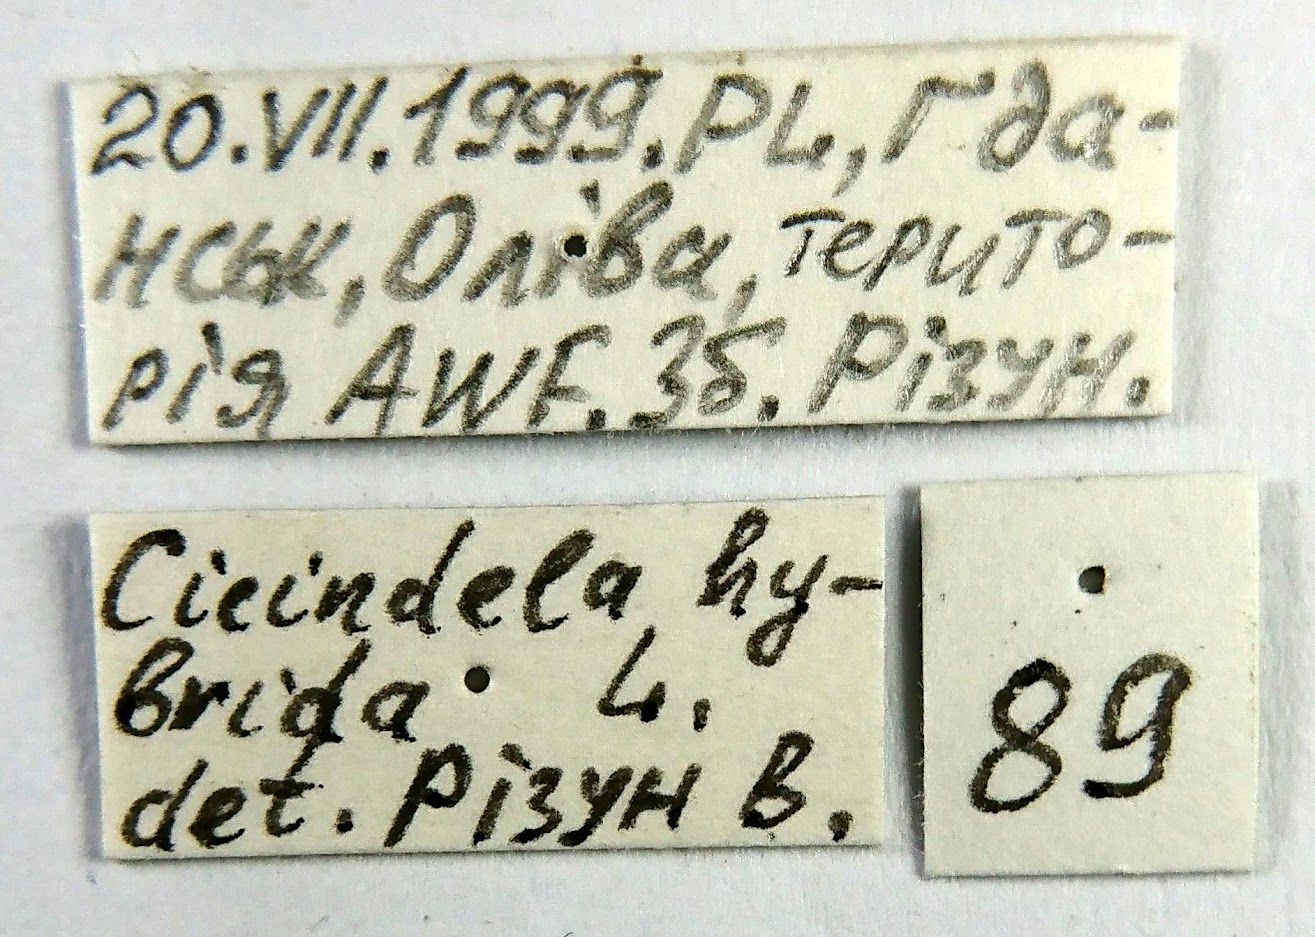 20.VII.1999. PL, Гда-
нськ, Оліва, терито-
рія AWF. Зб. Різун.
Cicindela hy-
brida L.
det. Різун В.
89